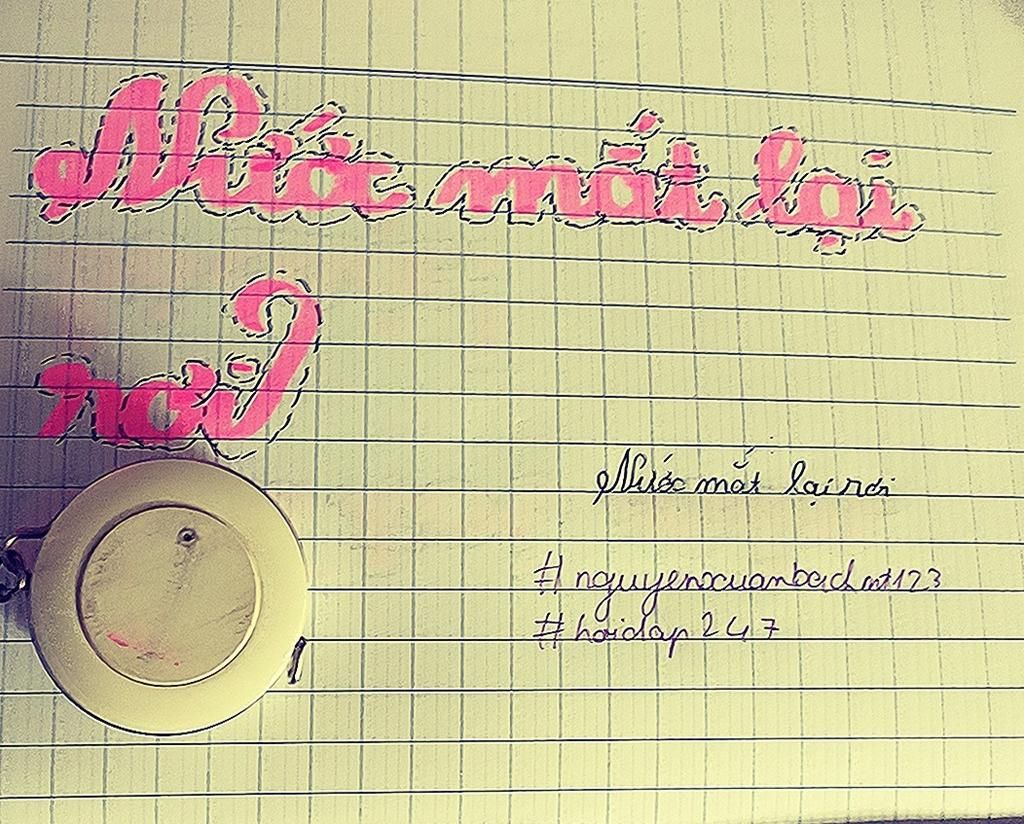 Nước mắt lại
rơi
Nước mắt lại rơi
#nguyenxuanbachmt123
#hoidap247